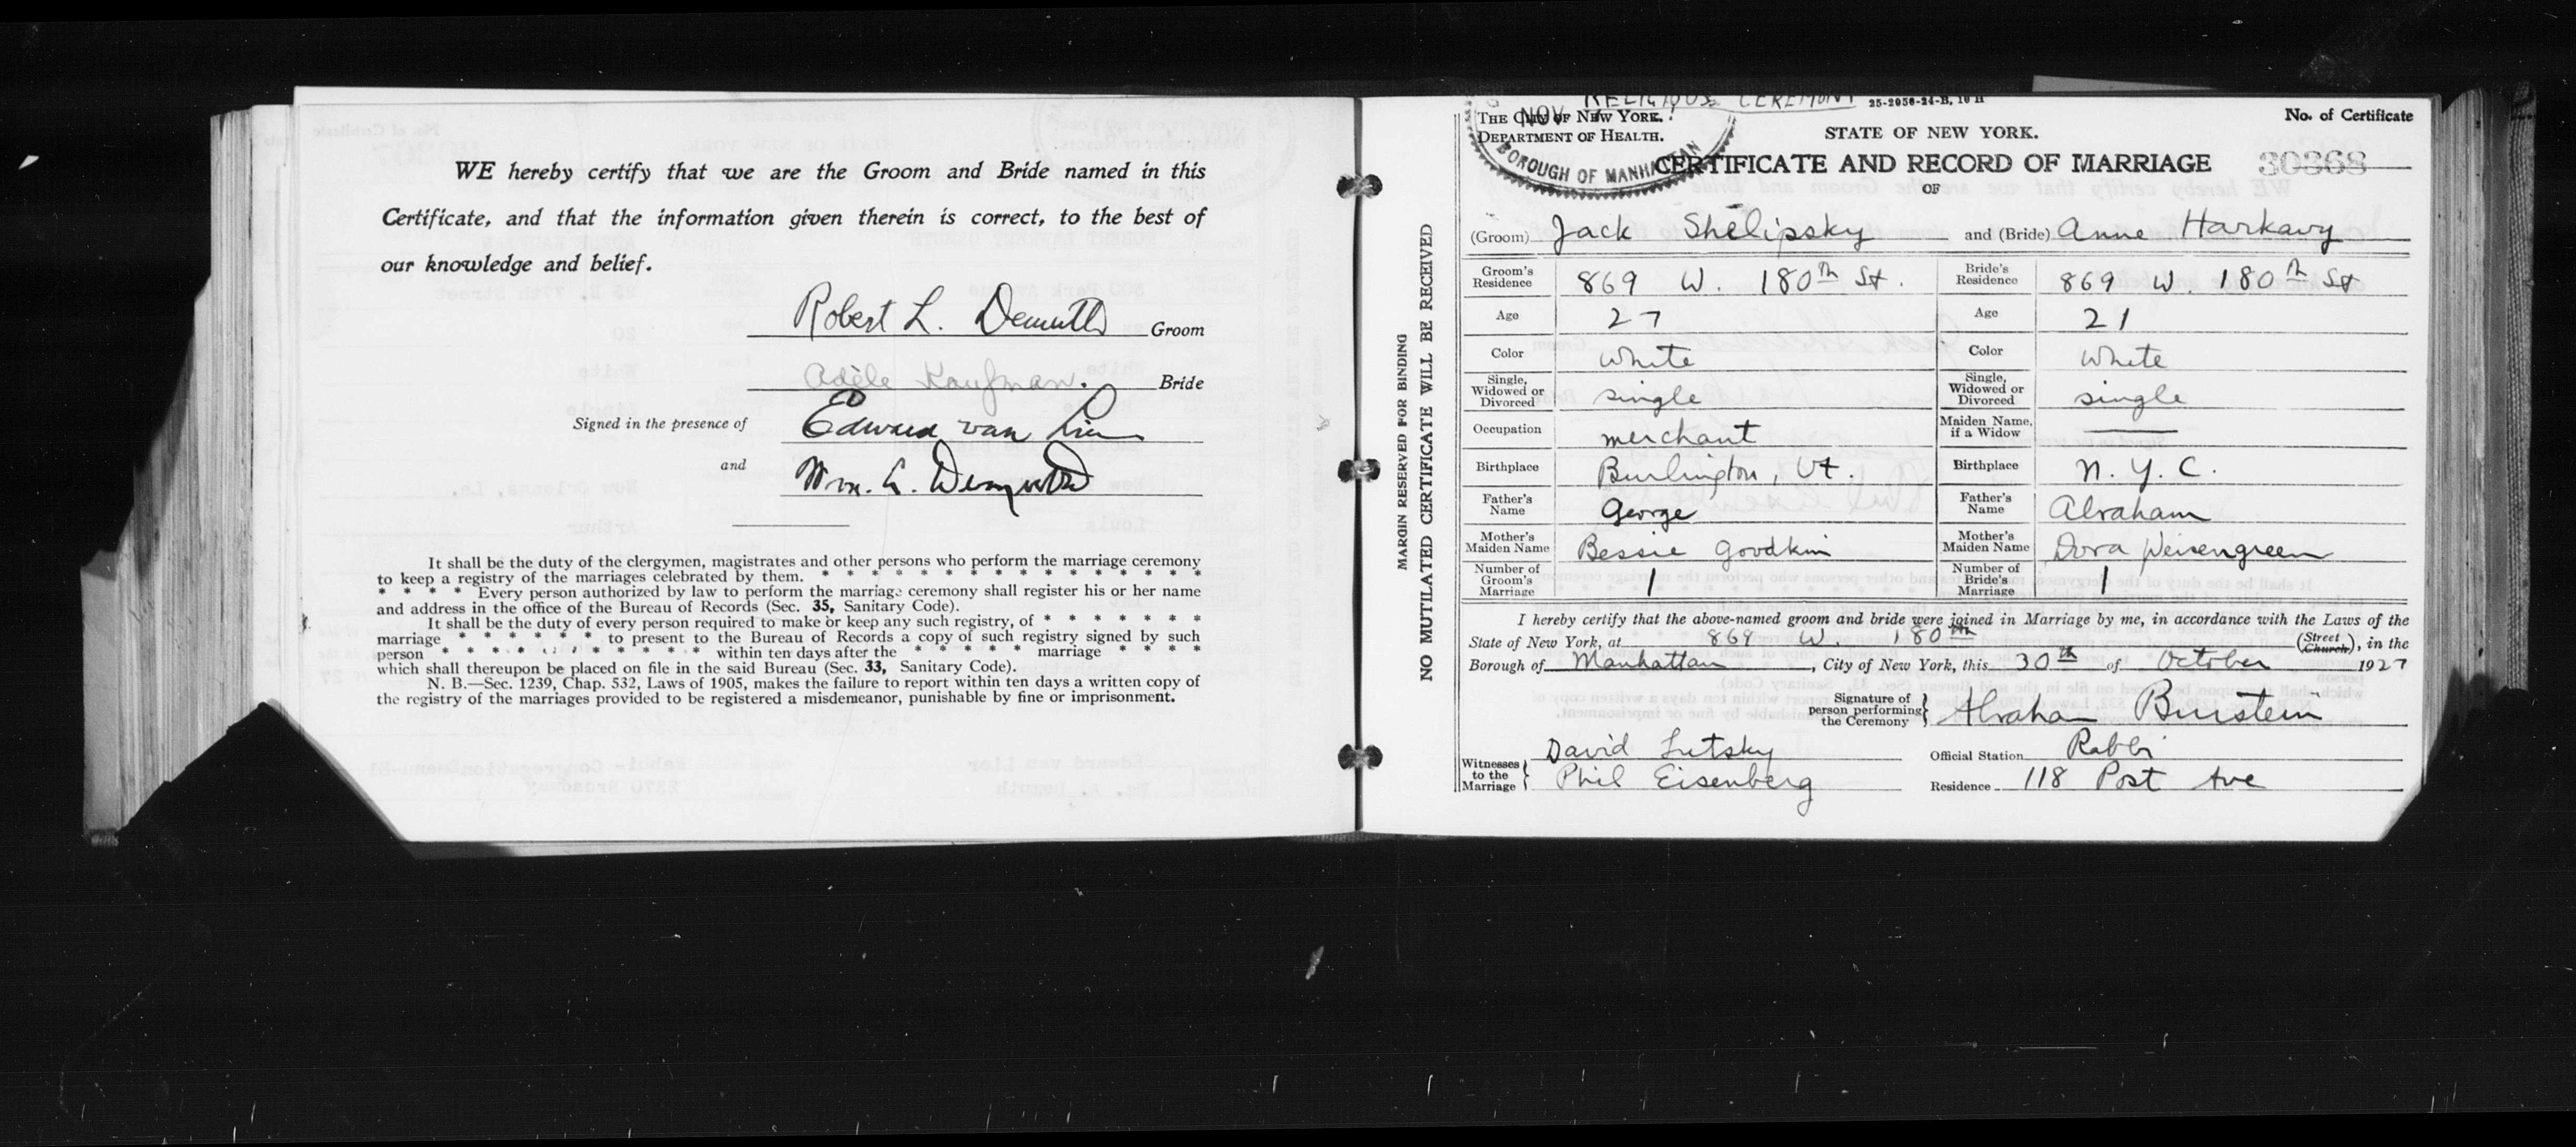 WE hereby certify that we are the Groom and Bride named in this
Certificate, and that the information given therein is correct, to the best of
our knowledge and belief.
Robert L. Demuth Groom
Adèle Kaufman. Bride
Signed in the presence of Edward van
and Wm.
It shall be the duty of the clergymen, magistrates and other persons who perform the marriage ceremony
to keep a registry of the marriages celebrated by them. * * * * * * * * * * * * * *
* * * * Every person authorized by law to perform the marriage ceremony shall register his or her name
and address in the office of the Bureau of Records (Sec. 35, Sanitary Code).
It shall be the duty of every person required to make or keep any such registry, of * * * * * * *
marriage * * * * * * to present to the Bureau of Records a copy of such registry signed by such
person * * * * * * * * * * within ten days after the * * * * * marriage * * * *
which shall thereupon be placed on file in the said Bureau (Sec. 33, Sanitary Code).
N. B.—Sec. 1239, Chap. 532, Laws of 1905, makes the failure to report within ten days a written copy of
the registry of the marriages provided to be registered a misdemeanor, punishable by fine or imprisonment.
MARGIN RESERVED FOR BINDING
NO MUTILATED CERTIFICATE WILL BE RECEIVED
RELIGIOUS CEREMONY 25-2056-24-B, 10 H
NOV
THE CITY OF NEW YORK.
DEPARTMENT OF HEALTH.
BOROUGH OF MANHATTAN
STATE OF NEW YORK.
No. of Certificate
CERTIFICATE AND RECORD OF MARRIAGE 30368
OF
(Groom) Jack Shelipsky and (Bride) Anne Harkavy
Groom's Residence 869 W. 180th St. Bride's Residence 869 W. 180th St
Age 27 Age 21
Color white Color white
Single, Widowed or Divorced single Single, Widowed or Divorced single
Occupation merchant Maiden Name, if a Widow ——
Birthplace Burlington, Vt. Birthplace N. Y. C.
Father's Name George Father's Name Abraham
Mother's Maiden Name Bessie Goodkin Mother's Maiden Name Dora Weisengreen
Number of Groom's Marriage 1 Number of Bride's Marriage 1
I hereby certify that the above-named groom and bride were joined in Marriage by me, in accordance with the Laws of the
State of New York, at 869 W. 180th (Street Church), in the
Borough of Manhattan, City of New York, this 30th of October 1927
Signature of person performing the Ceremony Abraham Burstein
Witnesses to the Marriage David Lutsky Official Station Rabbi
Phil Eisenberg Residence 118 Post Ave